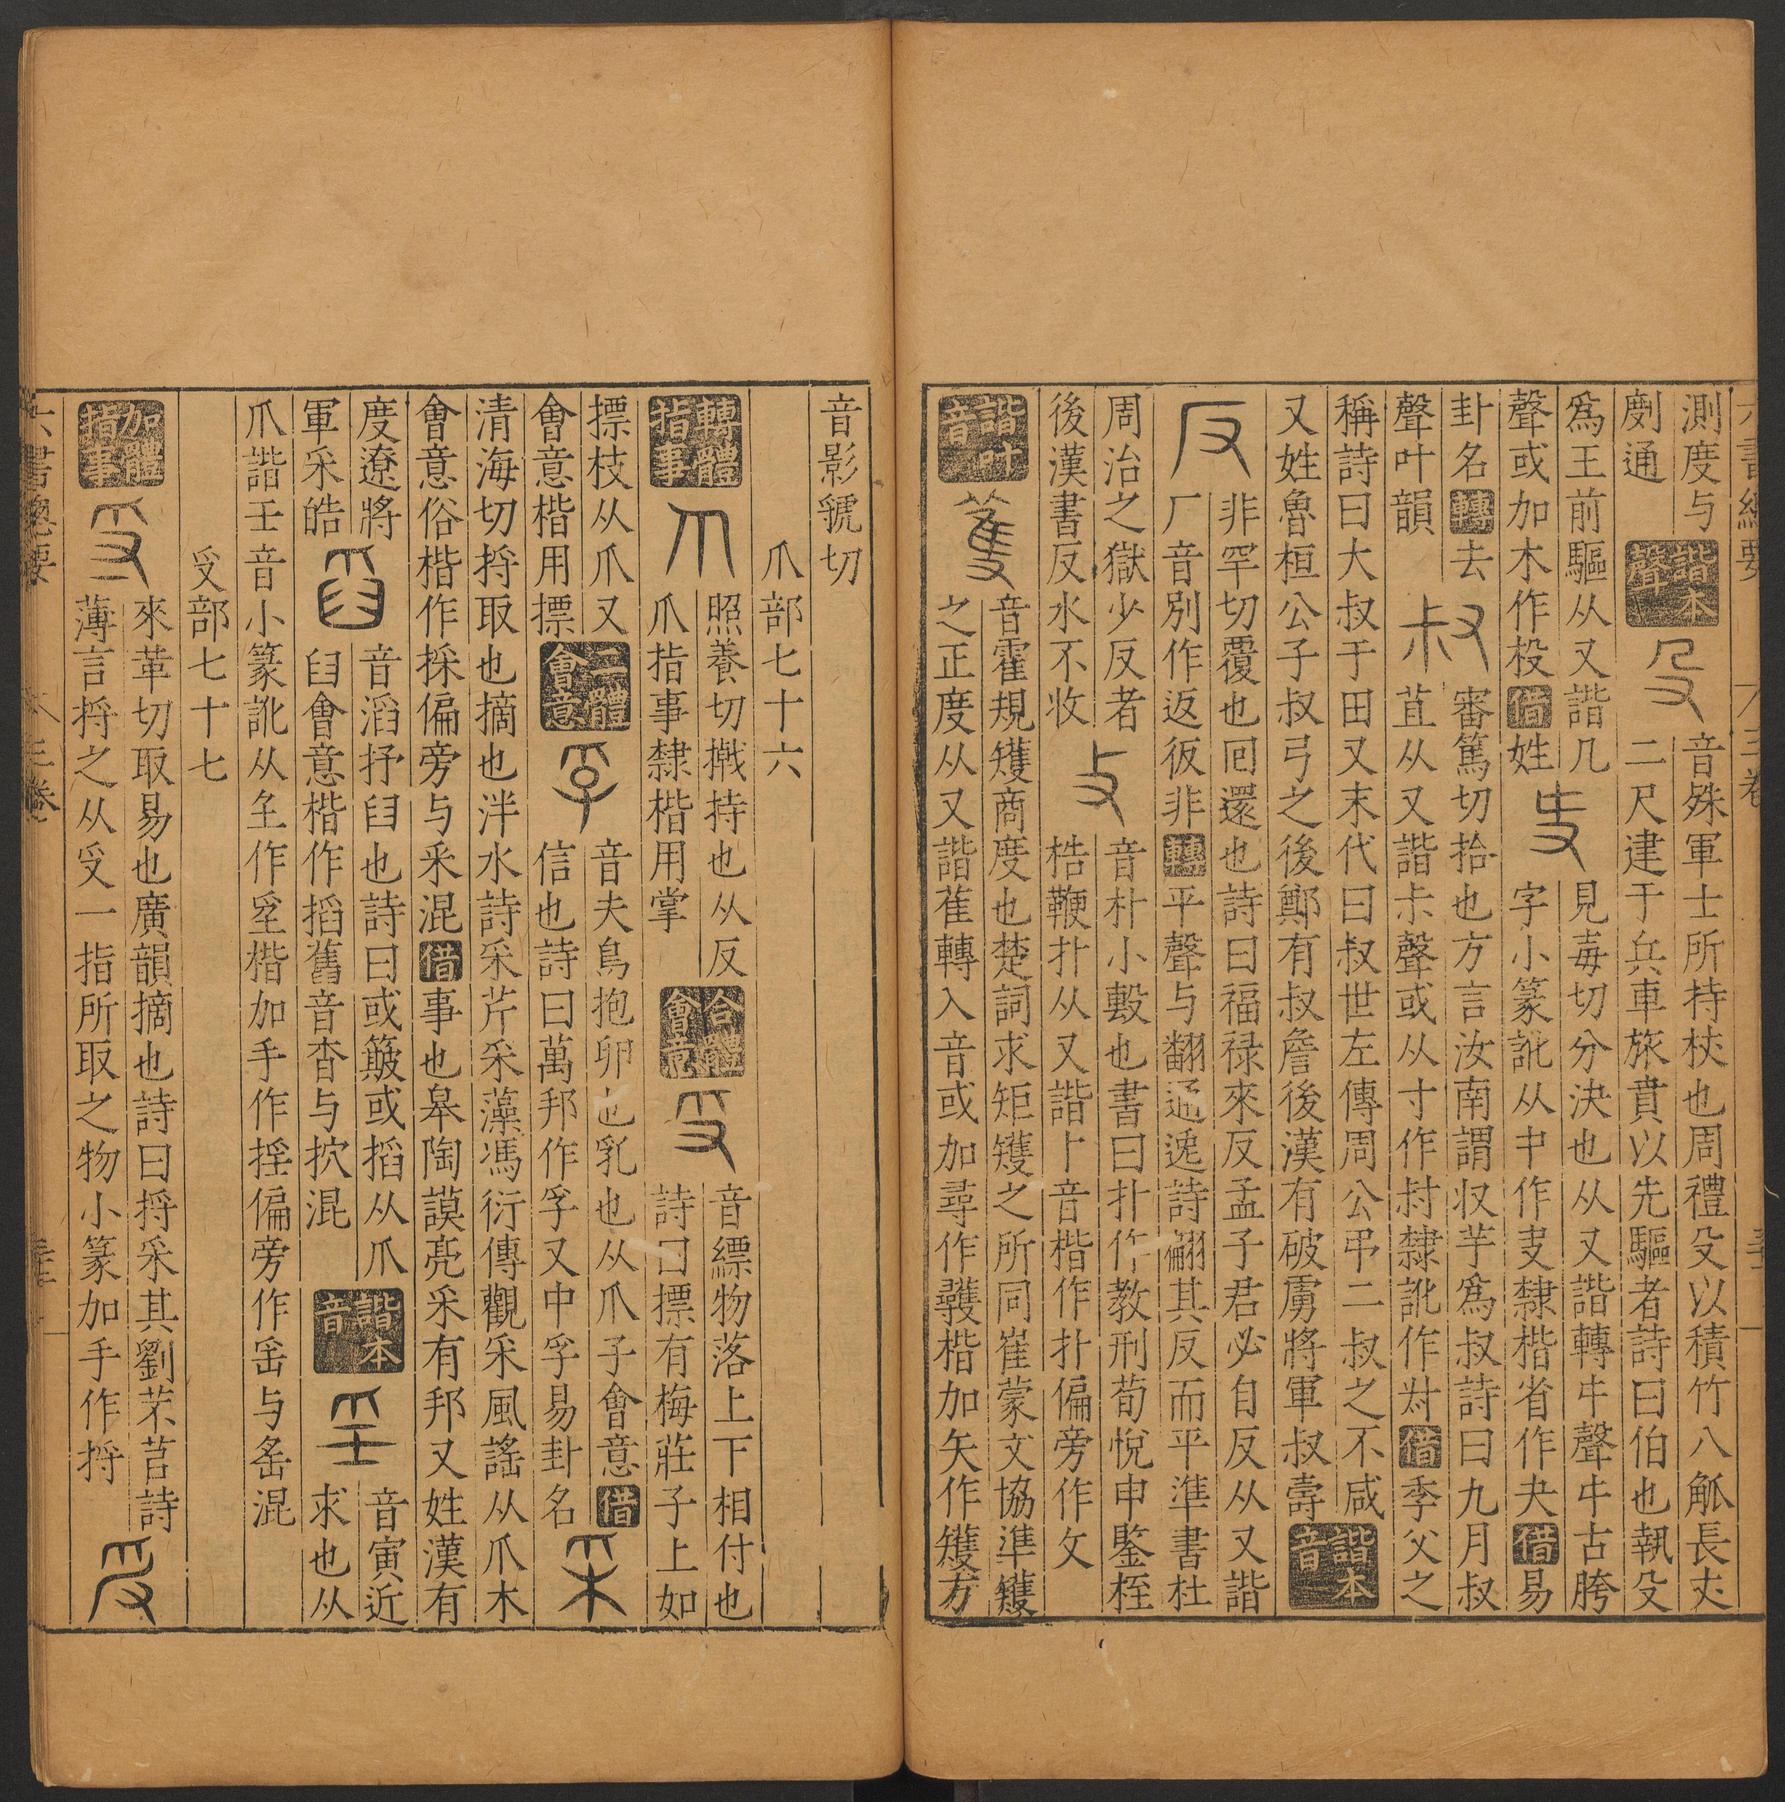 測度与
劌通
諧本
聲
殳
音殊軍士所持杖也周禮殳以積竹八觚長𠀋
二尺建于兵車旅賁以先驅者詩曰伯也執殳
爲王前驅从又諧几
聲或加木作杸借姓
叏
見毒切分決也从又諧轉㐄聲㐄古胯
字小篆訛从中作叏隸楷省作夬借易
卦名轉去
聲叶韻
叔
審篤切拾也方言汝南謂収芋爲叔詩曰九月叔
苴从又諧尗聲或从寸作村隸訛作尌借季父之
稱詩曰大叔于田又末代曰叔世左傳周公弔二叔之不咸
又姓魯桓公子叔弓之後鄭有叔詹後漢有破虜將軍叔壽
諧本
音
反
非罕切覆也回還也詩曰福禄來反孟子君必自反从又諧
厂音別作返彶非轉平聲与翻通逸詩翩其反而平準書杜
周治之獄少反者
後漢書反水不收
攴
音朴小毄也書曰扑作教刑荀悅申鑒桎
梏鞭扑从又諧卜音楷作扑偏旁作攵
諧叶
音
蒦
音霍規矱商度也楚詞求矩矱之所同崔蒙文協準矱
之正度从又諧萑轉入音或加尋作彠楷加矢作矱方
音影虢切
爪部七十六
轉體
指事
爪
照養切撠持也从反
爪指事隸楷用掌
合體
會意
受
音縹物落上下相付也
詩曰摽有梅莊子上如
摽枝从爪又
會意楷用摽
二體
會意
孚
音夫鳥抱卵也乳也从爪子會意借
信也詩曰萬邦作孚又中孚易卦名
采
清海切捋取也摘也泮水詩采芹采藻馮衍傳觀采風謠从爪木
會意俗楷作採偏旁与釆混借事也皋陶謨亮采有邦又姓漢有
度遼將
軍采皓
舀
音滔抒臼也詩曰或簸或搯从爪
臼會意楷作搯舊音杳与抭混
諧本
音
𡈼
音寅近
求也从
爪諧壬音小篆訛从𡈼作㸒楷加手作㨙偏旁作䍃与䍃混
受部七十七
加體
指事
寽
來革切取易也廣韻摘也詩曰捋采其劉芣苢詩
薄言捋之从受一指所取之物小篆加手作捋
六書總要
三卷